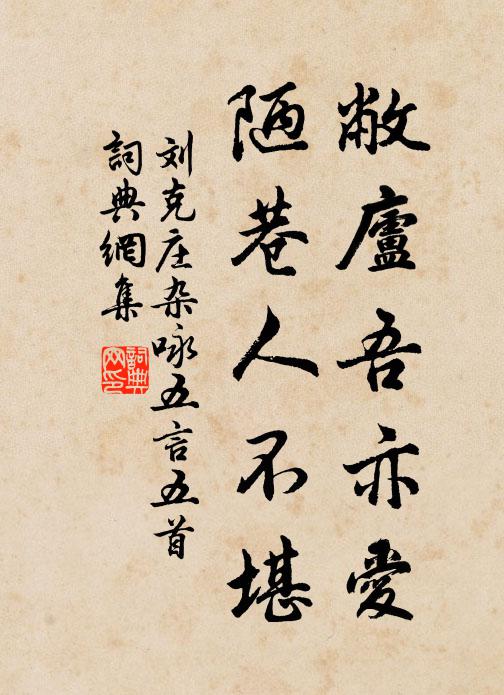 敝廬吾亦愛
陋巷人不堪
刘克庄杂咏五言五首
詞典網集
詞典网印